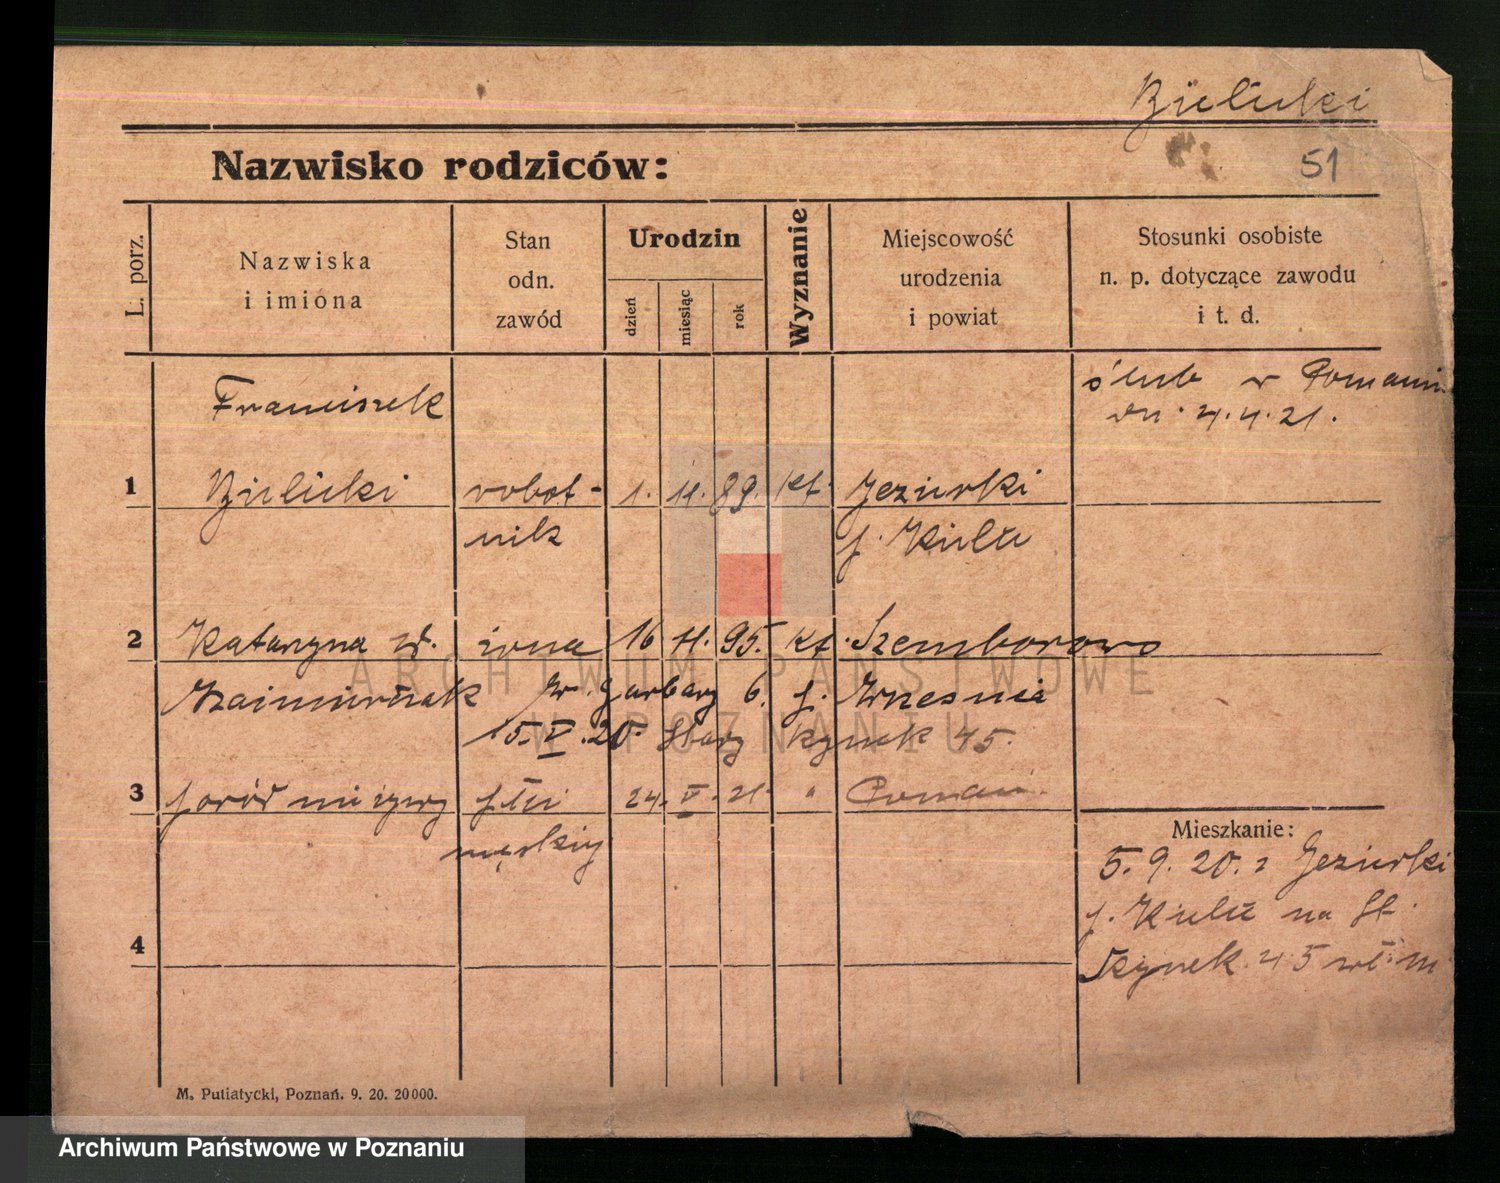 Bielicki
51
Nazwisko rodziców:
L. porz.
Nazwiska
i imiona
Stan
odn.
zawód
Urodzin
dzień
miesiąc
rok
Wyznanie
Miejscowość
urodzenia
i powiat
Stosunki osobiste
n. p. dotyczące zawodu
i t. d.
ślub w Poznaniu
dn. 4.4.21.
Franciszek
1 Bielicki robot- 1. 11. 89. kt. Jeziorki
nik
2 Katarzyna żona 16 11. 95. kt. Szemborowo
Kaźmierczak Garbary 6. p. Września
15.V.20. Stary Rynek 45.
3 poród nieżywy płci 24. V. 21. " Poznań
męskiej
Mieszkanie:
5.9.20. z Jeziorki
na St.
Rynek 45
4
M. Putiatycki, Poznań. 9. 20. 20000.
ARCHIWUM PAŃSTWOWE
W POZNANIU
Archiwum Państwowe w Poznaniu